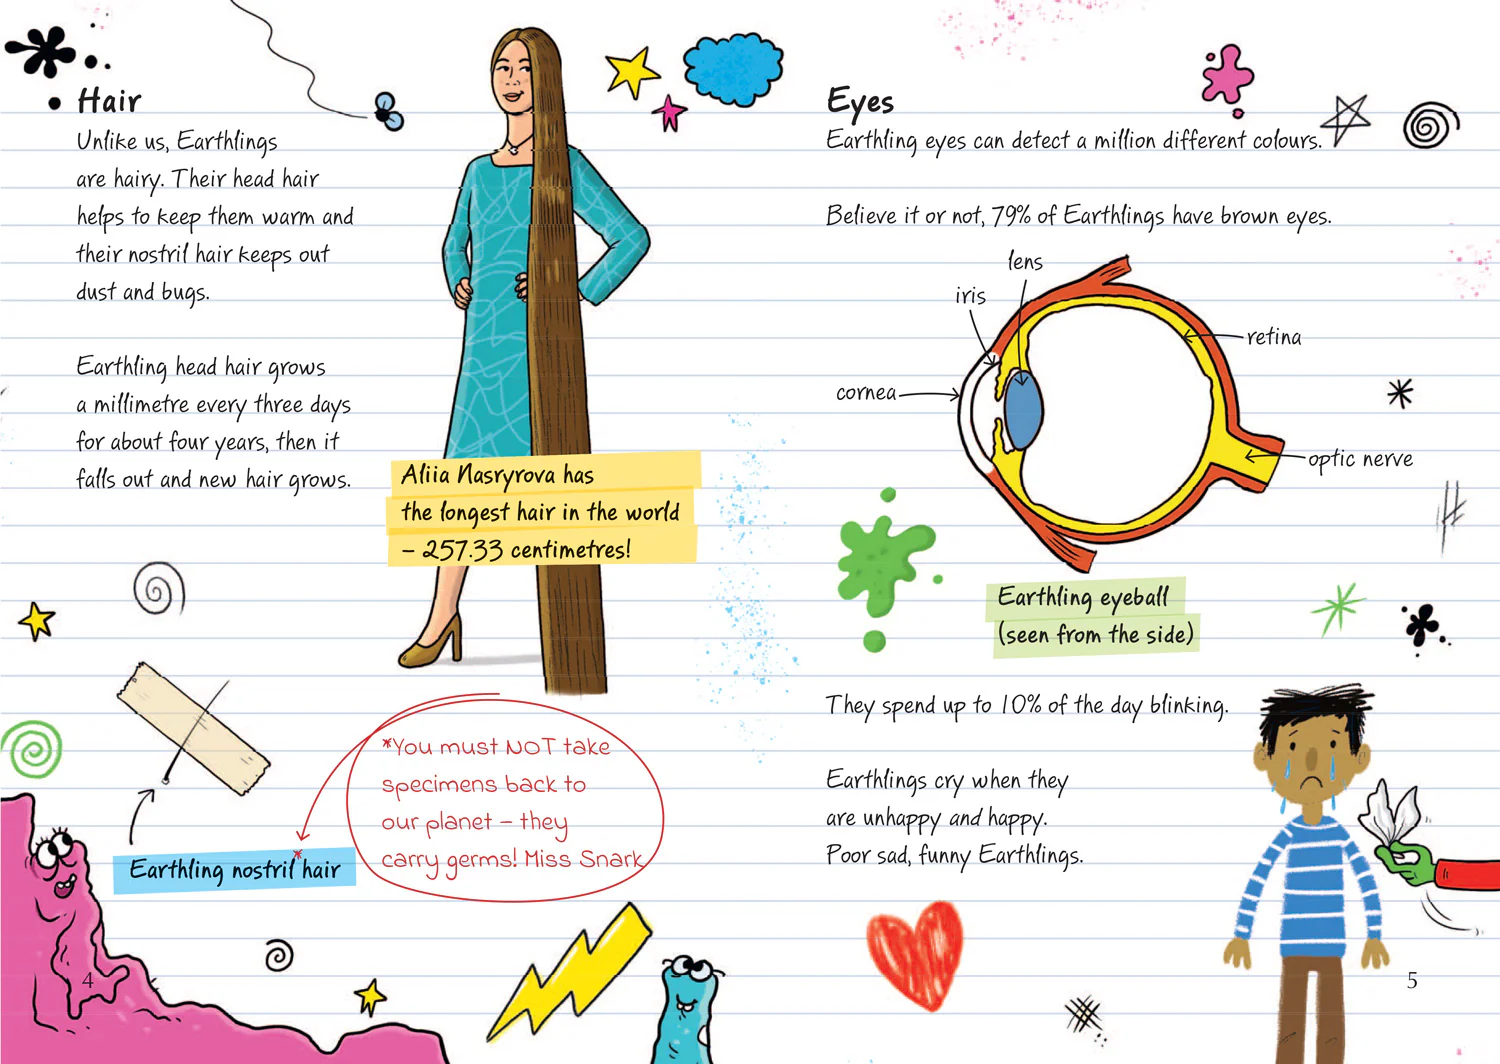 • Hair
Unlike us, Earthlings
are hairy. Their head hair
helps to keep them warm and
their nostril hair keeps out
dust and bugs.
Earthling head hair grows
a millimetre every three days
for about four years, then it
falls out and new hair grows.
Aliia Nasryrova has
the longest hair in the world
– 257.33 centimetres!
*You must NOT take
specimens back to
our planet – they
carry germs! Miss Snark
Earthling nostril* hair
4
Eyes
Earthling eyes can detect a million different colours.
Believe it or not, 79% of Earthlings have brown eyes.
lens
iris
retina
cornea
optic nerve
Earthling eyeball
(seen from the side)
They spend up to 10% of the day blinking.
Earthlings cry when they
are unhappy and happy.
Poor sad, funny Earthlings.
5